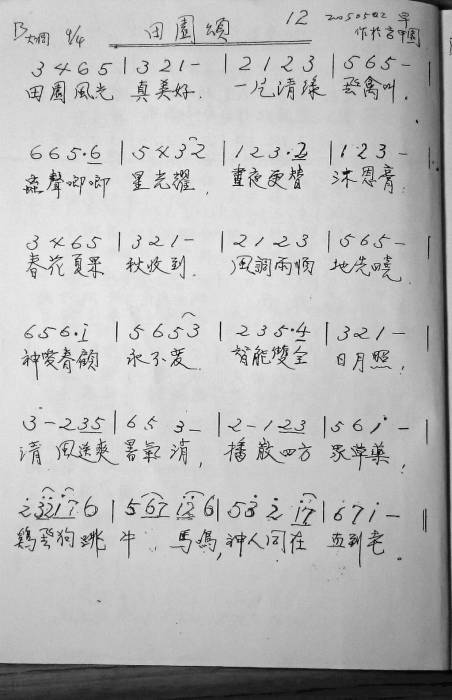 B大調 4/4 田園頌 12 20050502 早
作於古甲園
3 4 6 5 | 3 2 1 - | 2 1 2 3 | 5 6 5 - |
田園風光 真美好. 一片清綠 飛禽叫.
6 6 5 · 6 | 5 4 3 2 | 1 2 3 · 2 | 1 2 3 - |
蟲聲唧唧 星光耀, 晝夜更替 沐恩膏.
3 4 6 5 | 3 2 1 - | 2 1 2 3 | 5 6 5 - |
春花夏果 秋收到. 風調雨順 地先曉.
6 5 6 · i | 5 6 5 3 | 2 3 5 · 4 | 3 2 1 - |
神愛眷顧 永不变. 智能雙全 日月照.
3 - 2 3 5 | 6 5 3 - | 2 - 1 2 3 | 5 6 i - |
清 風送爽 暑氣消, 播散四方 眾草藥,
2 3 2 1 7 6 | 5 6 7 1 2 6 | 5 3 2 1 7 | 6 7 i - ||
鷄飛狗跳 牛.馬鳴, 神人同在 直到老.